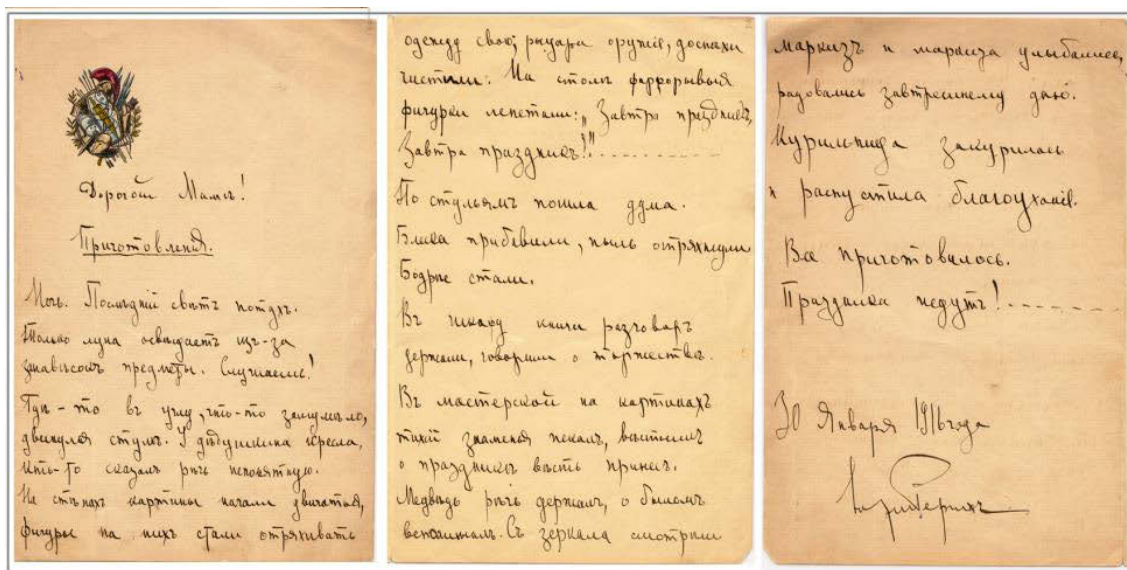 Дорогой Мамѣ!
Приготовленія.
Ночь. Послѣдній свѣтъ потухъ.
Только луна освѣщаетъ изъ-за
занавѣсокъ предметы. Слушаемъ!
Гдѣ-то въ углу, что-то зашумѣло,
двинулся стулъ. У дѣдушкина кресла,
кто-то сказалъ рѣчь непонятную.
На стѣнахъ картины начали двигаться,
фигуры на нихъ стали отряхивать
одежду свою, рыцари оружіе, доспѣхи
чистили. На столѣ фарфоровыя
фигурки лепетали: „Завтра праздникъ,
Завтра праздникъ!"
По стульямъ пошла дума.
прибавили, пыль отряхнули
Бодрые стали.
Въ шкафу книги разговоръ
держали, говорили о торжествѣ.
Въ мастерской на картинахъ
тихій
о праздникѣ вѣсть принесъ.
Медвѣдь рѣчь держалъ, о быломъ
вспоминалъ. Съ зеркала смотрѣли
маркизъ и маркиза улыбались,
радовались завтрешнему дню.
Курильница закурилась
и распустила благоуханіе.
Все приготовилось.
Праздника ждутъ!
30 Января 1916 года
Рерихъ